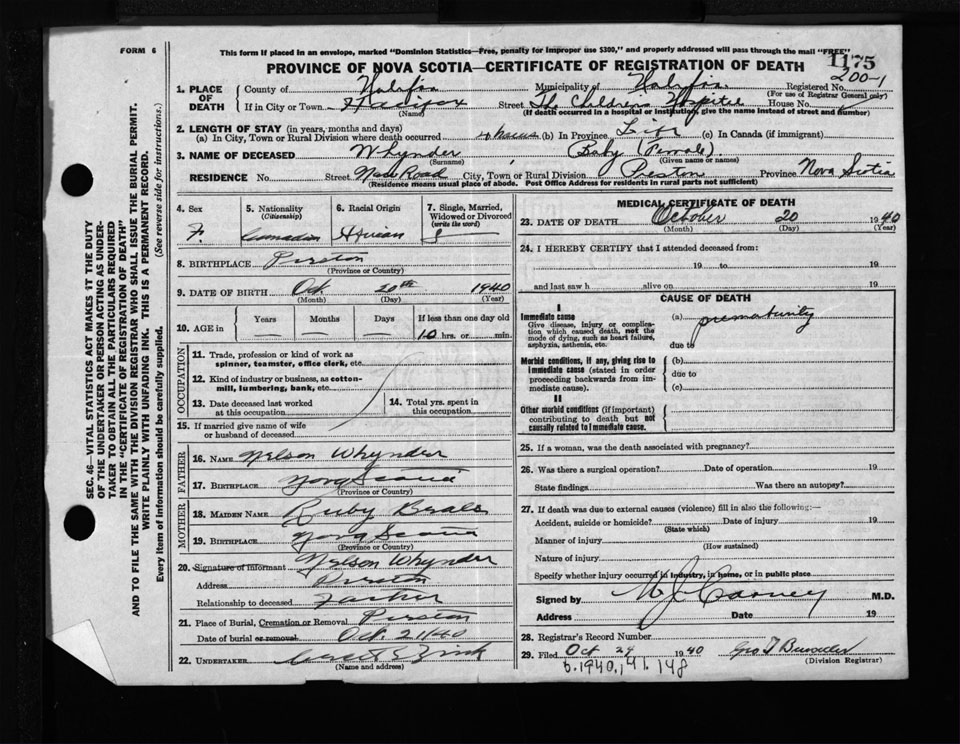 FORM 6
This form if placed in an envelope, marked "Dominion Statistics—Free, penalty for improper use $300," and properly addressed will pass through the mail "FREE"
PROVINCE OF NOVA SCOTIA—CERTIFICATE OF REGISTRATION OF DEATH
1175
200-1
1. PLACE OF DEATH
County of Halifax Municipality of Halifax Registered No.
(For use of Registrar General only)
If in City or Town Halifax Street The Childrens Hospital House No.
(Name) (If death occurred in a hospital or institution, give the name instead of street and number)
2. LENGTH OF STAY (in years, months and days)
(a) In City, Town or Rural Division where death occurred (b) In Province Life (c) In Canada (if immigrant)
3. NAME OF DECEASED Whynder, Baby (Female).
(Surname) (Given name or names)
RESIDENCE No. Street Road City, Town or Rural Division Preston Province Nova Scotia
(Residence means usual place of abode. Post Office Address for residents in rural parts not sufficient)
4. Sex F.
5. Nationality (Citizenship) Canadian
6. Racial Origin
7. Single, Married, Widowed or Divorced (write the word) S
8. BIRTHPLACE Preston
(Province or Country)
9. DATE OF BIRTH Oct. 20th 1940
(Month) (Day) (Year)
10. AGE in Years Months Days If less than one day old
10 hrs. or min.
OCCUPATION
11. Trade, profession or kind of work as spinner, teamster, office clerk, etc.
12. Kind of industry or business, as cotton-mill, lumbering, bank, etc.
13. Date deceased last worked at this occupation
14. Total yrs. spent in this occupation
15. If married give name of wife or husband of deceased
FATHER
16. NAME Nelson Whynder
17. BIRTHPLACE Nova Scotia
(Province or Country)
MOTHER
18. MAIDEN NAME Ruby Beals
19. BIRTHPLACE Nova Scotia
(Province or Country)
20. Signature of informant Nelson Whynder
Address Preston
Relationship to deceased Father
21. Place of Burial, Cremation or Removal Preston
Date of burial or removal Oct. 21/40
22. UNDERTAKER
(Name and address)
MEDICAL CERTIFICATE OF DEATH
23. DATE OF DEATH October 20 1940
(Month) (Day) (Year)
24. I HEREBY CERTIFY that I attended deceased from:
19 to 19
and last saw h alive on 19
CAUSE OF DEATH
I
Immediate cause (a) prematurity
Give disease, injury or complication, which caused death, not the mode of dying, such as heart failure, asphyxia, asthenia, etc.
due to
Morbid conditions, if any, giving rise to immediate cause (stated in order proceeding backwards from immediate cause).
(b)
due to
(c)
II
Other morbid conditions (if important) contributing to death but not causally related to immediate cause.
25. If a woman, was the death associated with pregnancy?
26. Was there a surgical operation? Date of operation 19
State findings Was there an autopsy?
27. If death was due to external causes (violence) fill in also the following:—
Accident, suicide or homicide? Date of injury 19
(State which)
Manner of injury
(How sustained)
Nature of injury
Specify whether injury occurred in industry, in home, or in public place
Signed by M.D.
Address Date 19
28. Registrar's Record Number
29. Filed Oct 29 1940
(Division Registrar)
b.1940, 141. 148
SEC. 46—VITAL STATISTICS ACT MAKES IT THE DUTY
OF THE UNDERTAKER OR PERSON ACTING AS UNDER-
TAKER TO OBTAIN ALL THE PARTICULARS REQUIRED
IN THE "CERTIFICATE OF REGISTRATION OF DEATH"
AND TO FILE THE SAME WITH THE DIVISION REGISTRAR WHO SHALL ISSUE THE BURIAL PERMIT.
WRITE PLAINLY WITH UNFADING INK. THIS IS A PERMANENT RECORD.
Every item of information should be carefully supplied. (See reverse side for instructions.)